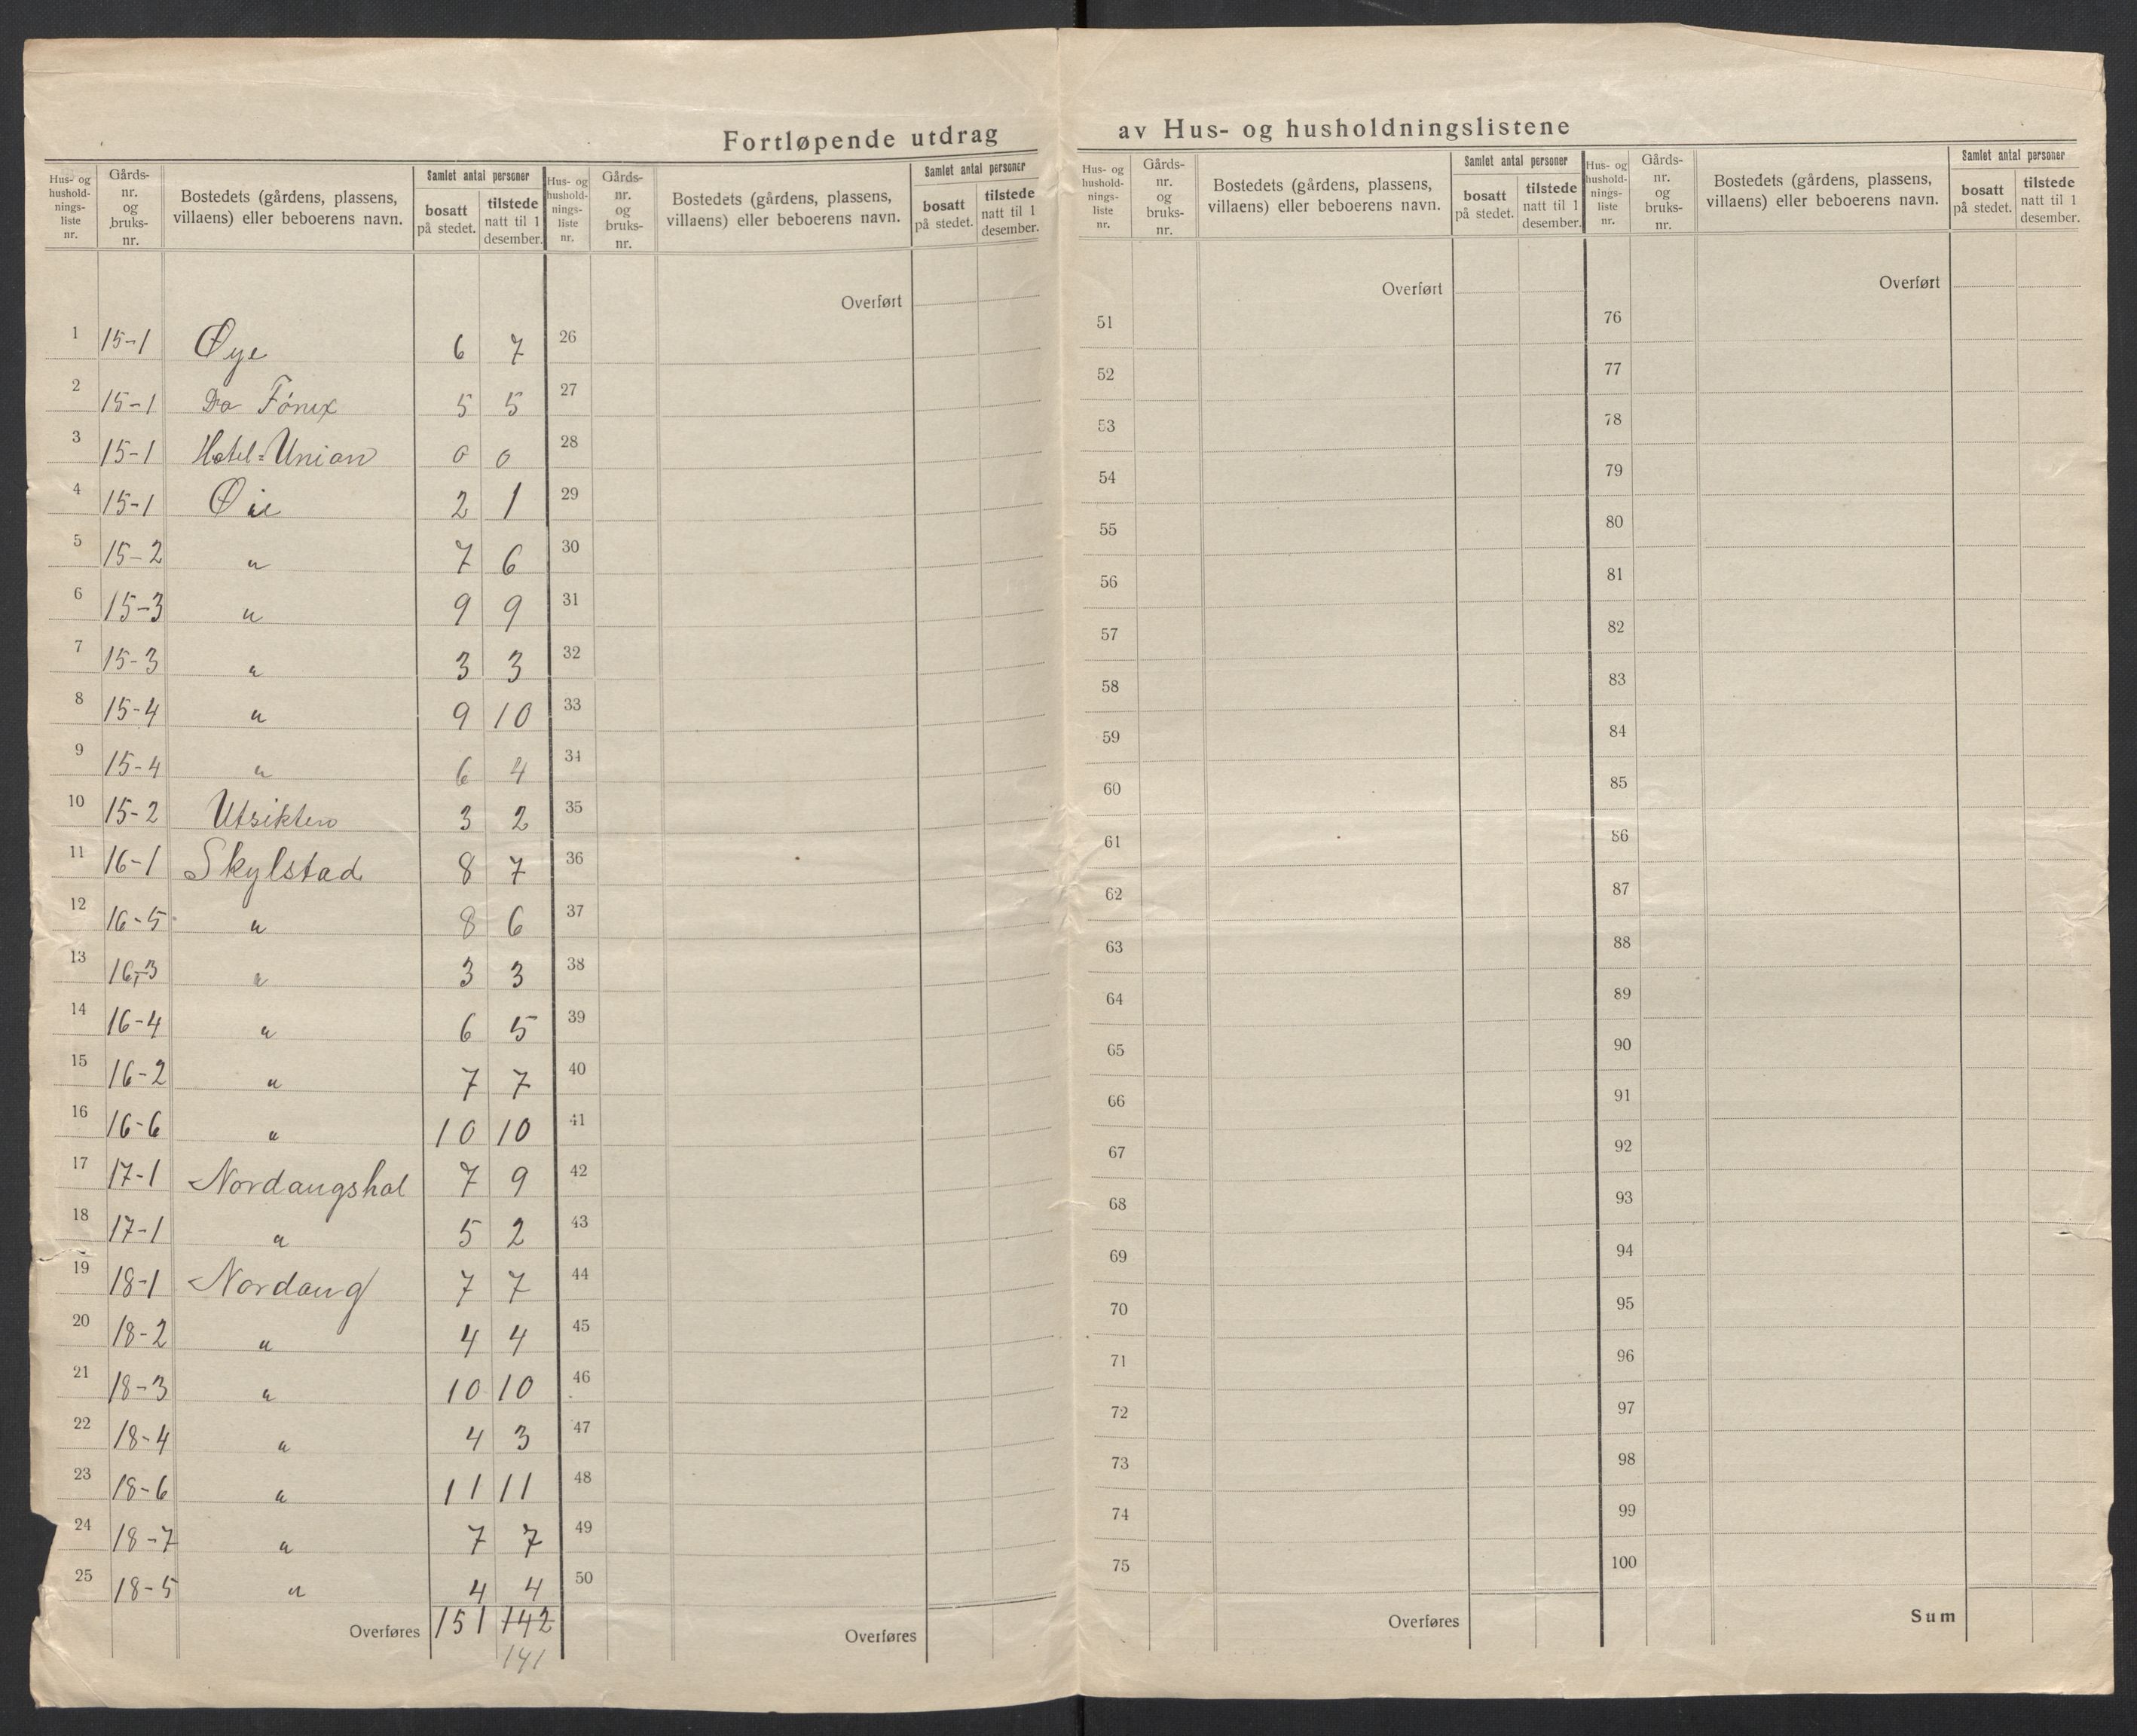 Fortløpende utdrag av Hus- og husholdningslistene
Hus- og hushold-nings-liste nr. | Gårds-nr. og bruks-nr. | Bostedets (gårdens, plassens, villaens) eller beboerens navn. | Samlet antal personer | bosatt på stedet. | tilstede natt til 1 desember.
1 15-1 Øye 6 7
2 15-1 Do Fönix 5 5
3 15-1 Hotel=Union 0 0
4 15-1 Øie 2 1
5 15-2 " 7 6
6 15-3 " 9 9
7 15-3 " 3 3
8 15-4 " 9 10
9 15-4 " 6 4
10 15-2 Utsikten 3 2
11 16-1 Skylstad 8 7
12 16-5 " 8 6
13 16-3 " 3 3
14 16-4 " 6 5
15 16-2 " 7 7
16 16-6 " 10 10
17 17-1 Nordangshol 7 9
18 17-1 " 5 2
19 18-1 Nordang 7 7
20 18-2 " 4 4
21 18-3 " 10 10
22 18-4 " 4 3
23 18-6 " 11 11
24 18-7 " 7 7
25 18-5 " 4 4
Overføres 151 142
141
Hus- og hushold-nings-liste nr. | Gårds-nr. og bruks-nr. | Bostedets (gårdens, plassens, villaens) eller beboerens navn. | Samlet antal personer | bosatt på stedet. | tilstede natt til 1 desember.
Overført
26
27
28
29
30
31
32
33
34
35
36
37
38
39
40
41
42
43
44
45
46
47
48
49
50
Overføres
Hus- og hushold-nings-liste nr. | Gårds-nr. og bruks-nr. | Bostedets (gårdens, plassens, villaens) eller beboerens navn. | Samlet antal personer | bosatt på stedet. | tilstede natt til 1 desember.
Overført
51
52
53
54
55
56
57
58
59
60
61
62
63
64
65
66
67
68
69
70
71
72
73
74
75
Overføres
Hus- og hushold-nings-liste nr. | Gårds-nr. og bruks-nr. | Bostedets (gårdens, plassens, villaens) eller beboerens navn. | Samlet antal personer | bosatt på stedet. | tilstede natt til 1 desember.
Overført
76
77
78
79
80
81
82
83
84
85
86
87
88
89
90
91
92
93
94
95
96
97
98
99
100
Sum